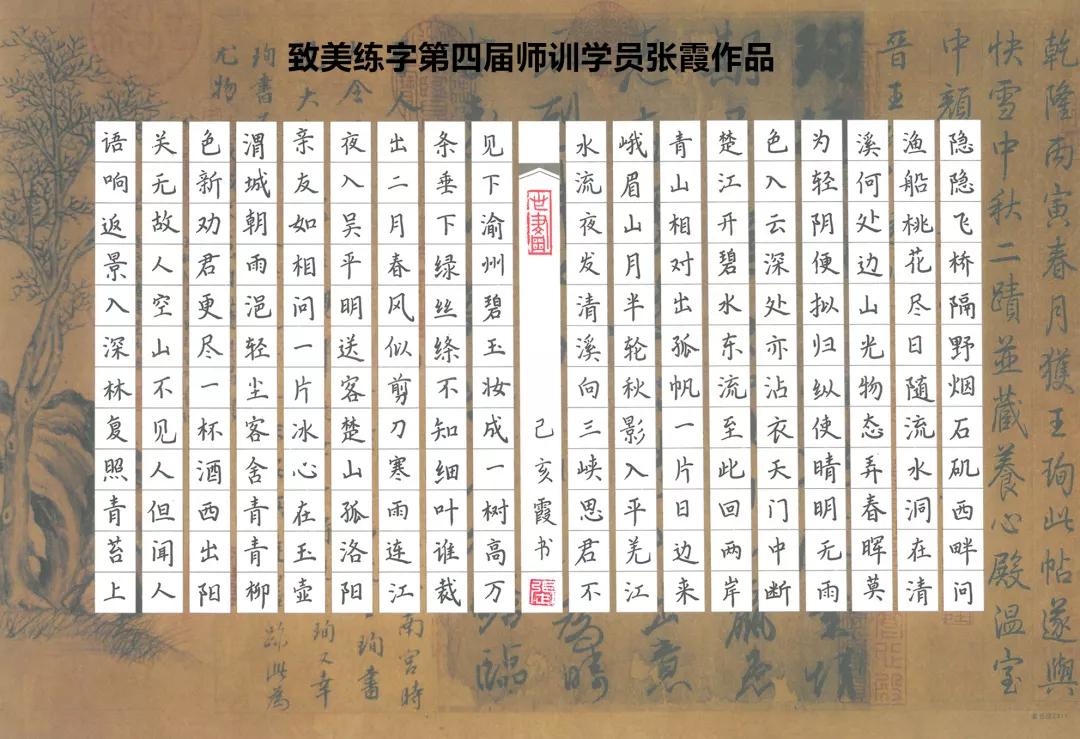 致美练字第四届师训学员张霞作品
乾隆丙寅春月獲王珣此帖遂與
快雪中秋二蹟並藏養心殿溫室
中顏
晋王
隐隐飞桥隔野烟石矶西畔问
渔船桃花尽日随流水洞在清
溪何处边山光物态弄春晖莫
为轻阴便拟归纵使晴明无雨
色入云深处亦沾衣天门中断
楚江开碧水东流至此回两岸
青山相对出孤帆一片日边来
峨眉山月半轮秋影入平羌江
水流夜发清溪向三峡思君不
己亥霞书
见下渝州碧玉妆成一树高万
条垂下绿丝绦不知细叶谁裁
出二月春风似剪刀寒雨连江
夜入吴平明送客楚山孤洛阳
亲友如相问一片冰心在玉壶
渭城朝雨浥轻尘客舍青青柳
色新劝君更尽一杯酒西出阳
关无故人空山不见人但闻人
语响返景入深林复照青苔上